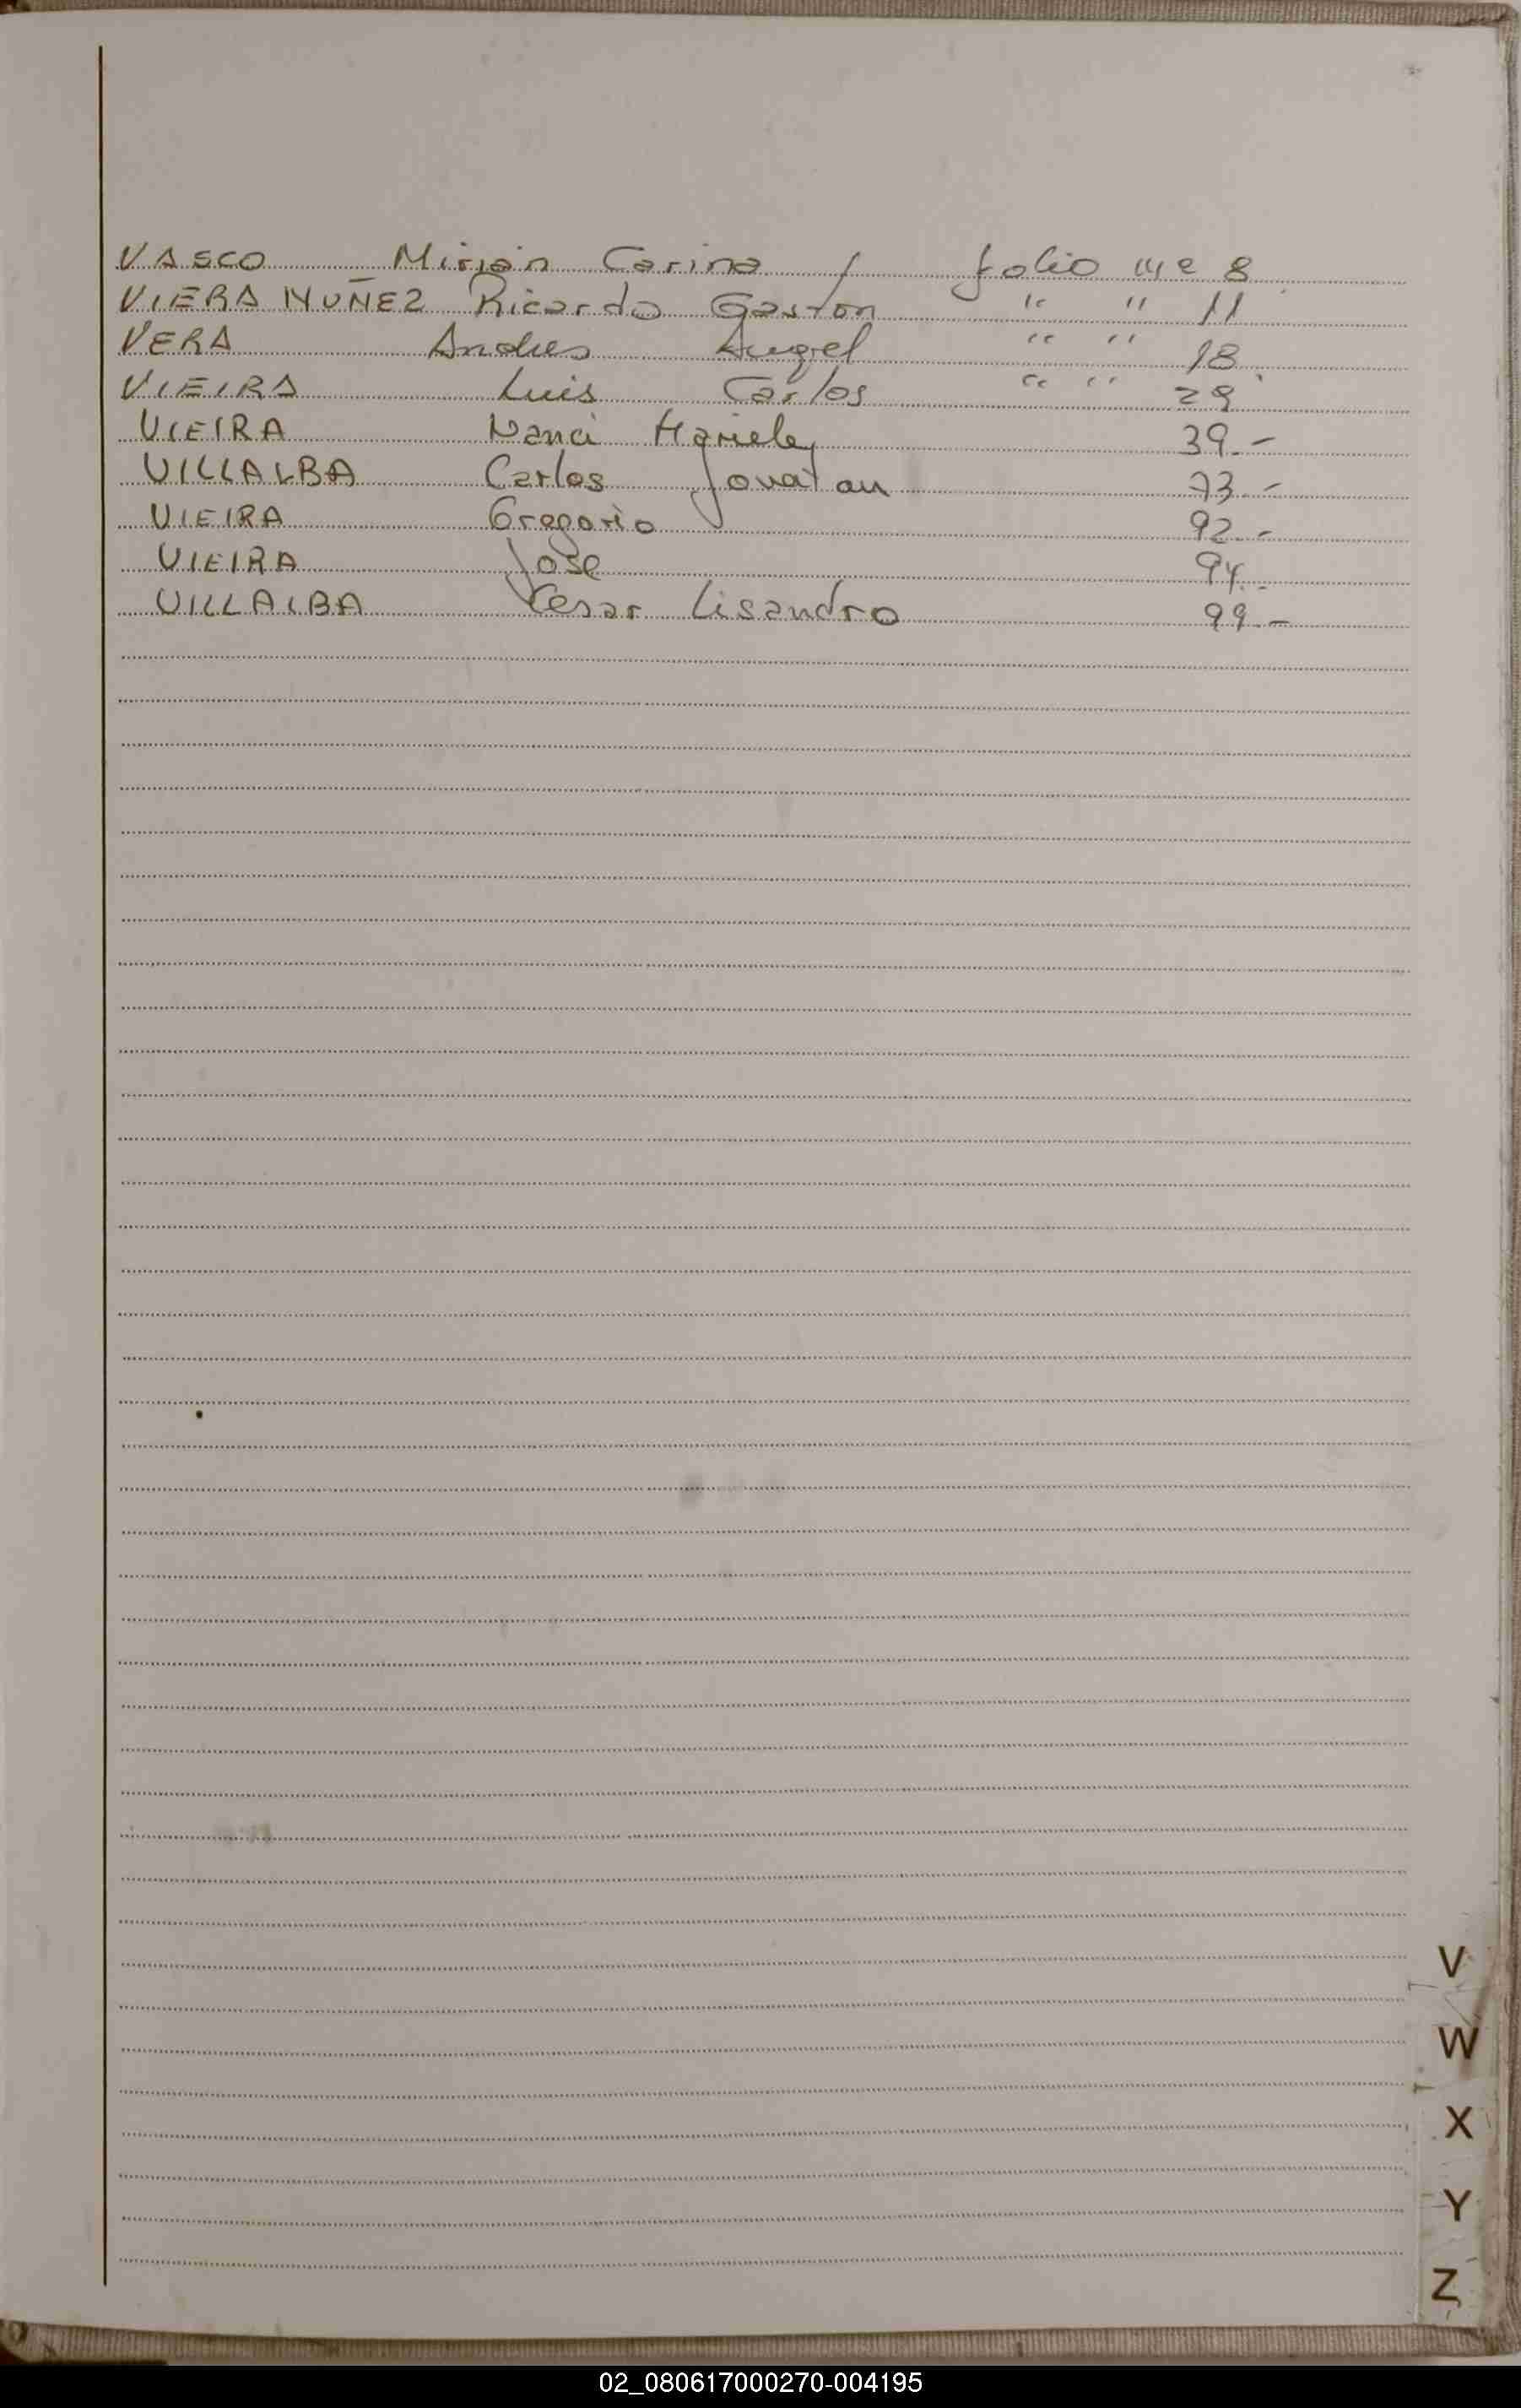 VASCO Mirian Carina / folio nº 8
VIERA NUÑEZ Ricardo Gaston " " 11
VERA Andres Angel " " 18
VIEIRA Luis Carlos " " 29
VIEIRA Nanci Mariele 39.-
VILLALBA Carlos Jonatan 73.-
VIEIRA Gregorio 92.-
VIEIRA Jose 94.-
VILLALBA Cesar Lisandro 99.-
V
W
X
Y
Z
02_080617000270-004195